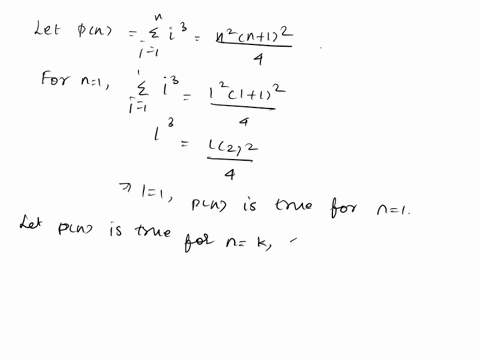 Let p(n) = \sum_{i=1}^{n} i^3 = \frac{n^2(n+1)^2}{4}
For n=1, \sum_{i=1}^{1} i^3 = \frac{1^2(1+1)^2}{4}
1^3 = \frac{1(2)^2}{4}
⇒ 1=1, p(n) is true for n=1.
Let p(n) is true for n=k,